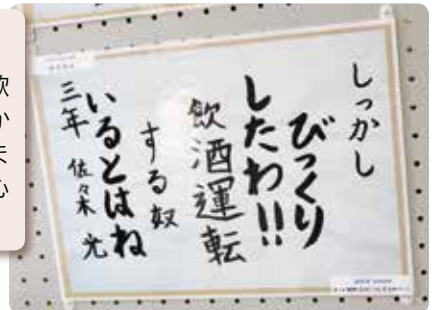 しっかし
びっくり
したわ!!
飲酒運転
する奴
いるとはね
三年 佐々木 光